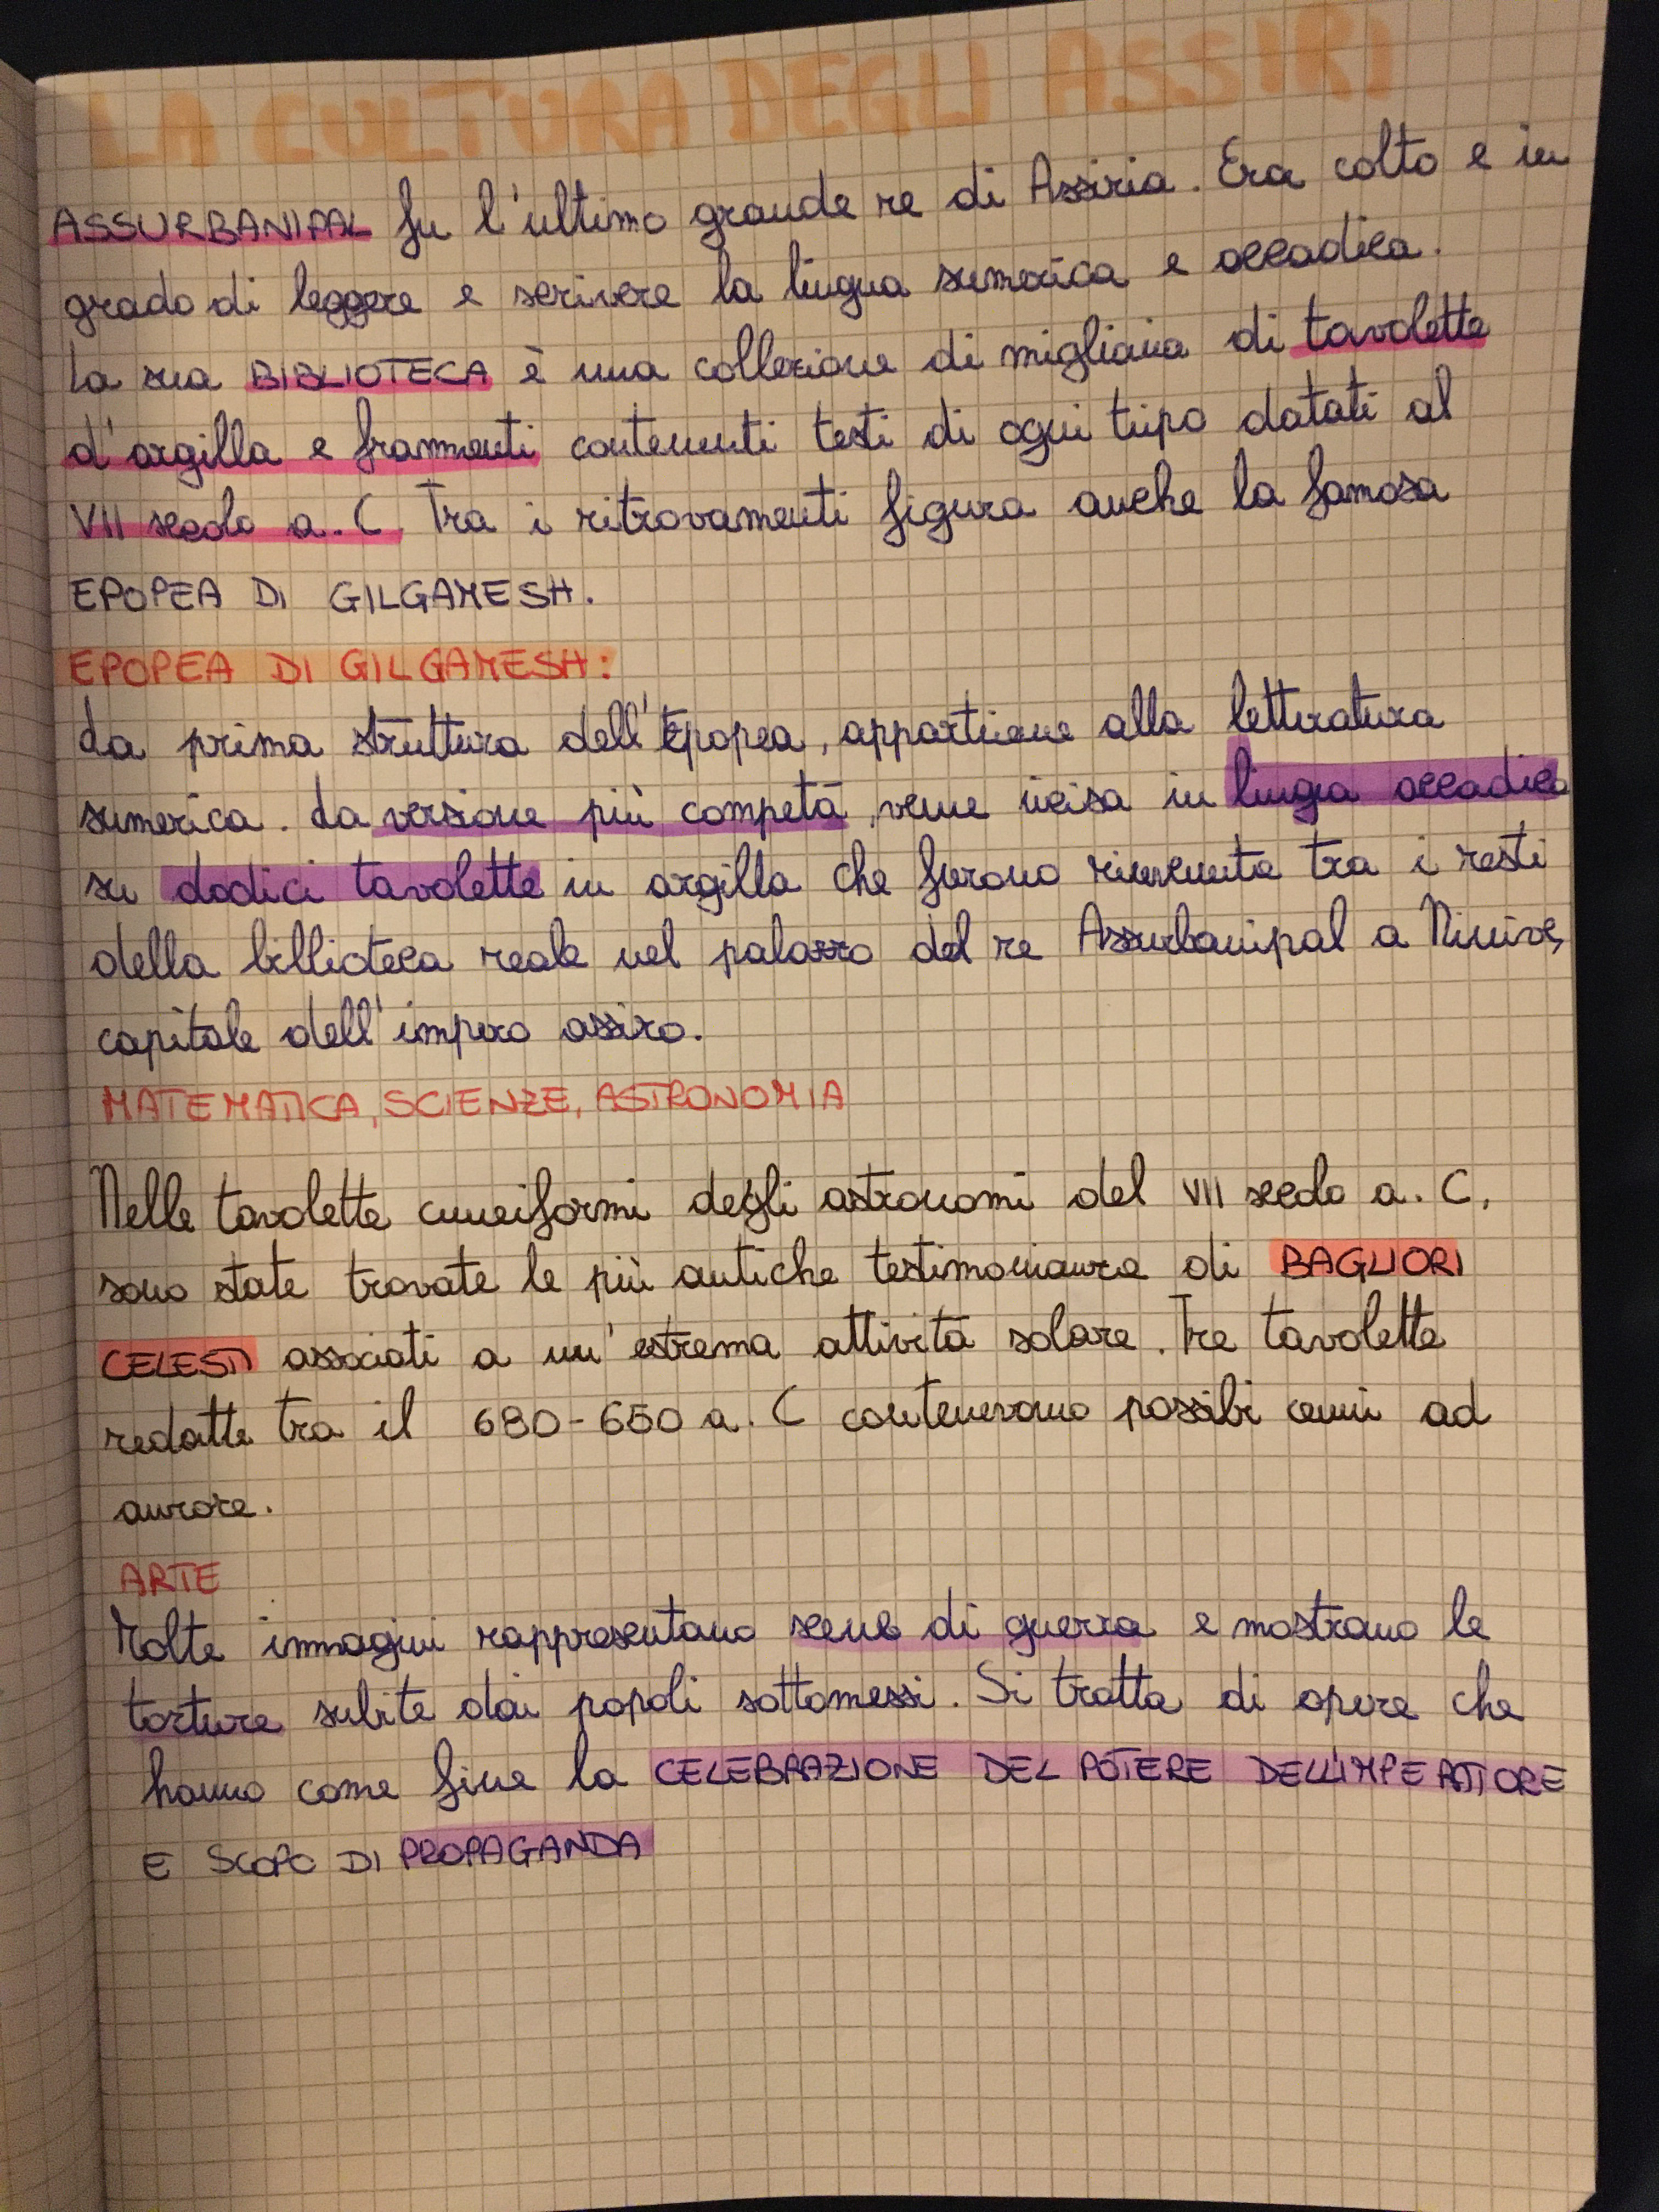 LA CULTURA DEGLI ASSIRI
ASSURBANIPAL fu l'ultimo grande re di Assiria. Era colto e in
grado di leggere e scrivere la lingua sumerica e accadica.
La sua BIBLIOTECA è una collezione di migliaia di tavolette
d'argilla e frammenti contenenti testi di ogni tipo datati al
VII secolo a. C. Tra i ritrovamenti figura anche la famosa
EPOPEA DI GILGAMESH.
EPOPEA DI GILGAMESH:
La prima struttura dell'Epopea, appartiene alla letteratura
sumerica. La versione più competa, venne incisa in lingua accadica
su dodici tavolette in argilla che furono rinvenute tra i resti
della biblioteca reale nel palazzo del re Assurbanipal a Ninive,
capitale dell'impero assiro.
MATEMATICA, SCIENZE, ASTRONOMIA
Nelle tavolette cuneiformi degli astronomi del VII secolo a. C.
sono state trovate le più antiche testimonianze di BAGLIORI
CELESTI associati a un'estrema attività solare. Tre tavolette
redatte tra il 680-650 a. C contenevano possibi cenni ad
aurore.
ARTE
Molte immagini rappresentano scene di guerra e mostrano le
torture subite dai popoli sottomessi. Si tratta di opere che
hanno come fine la CELEBRAZIONE DEL POTERE DELL'IMPERATORE
E SCOPO DI PROPAGANDA